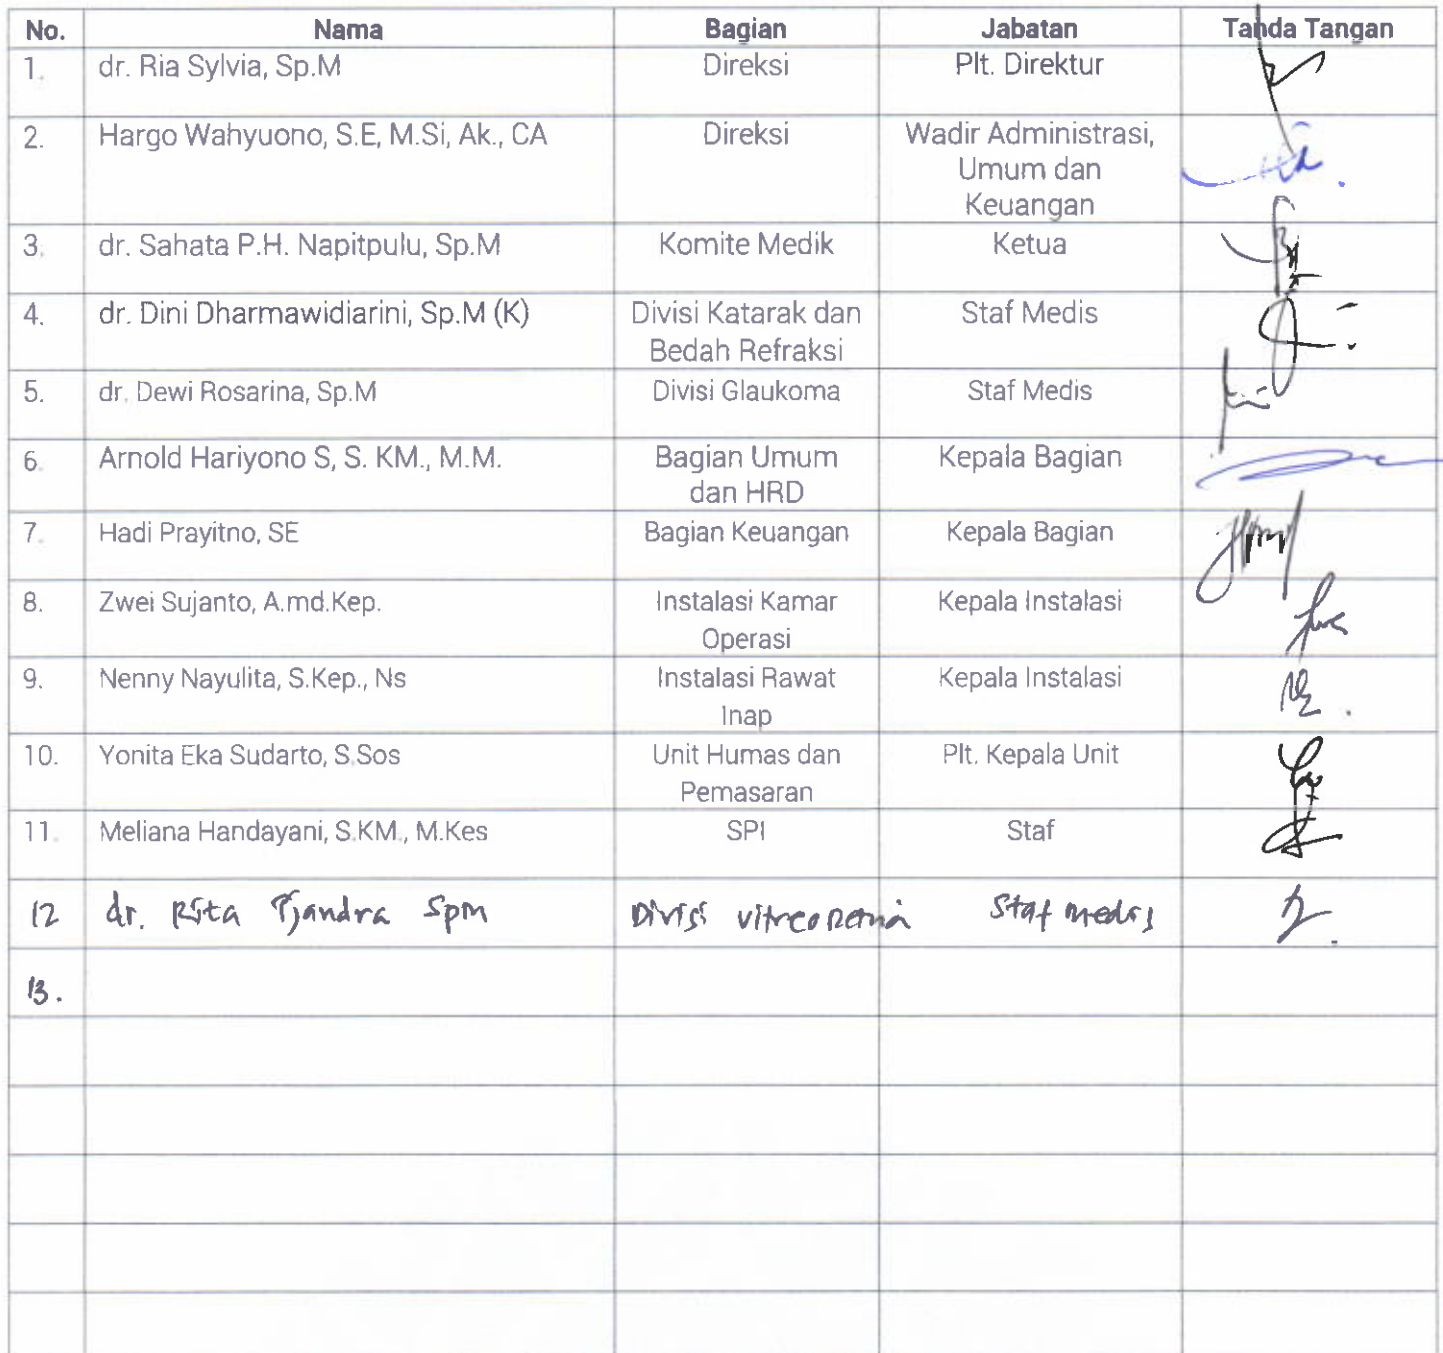 No. Nama Bagian Jabatan Tanda Tangan
1. dr. Ria Sylvia, Sp.M Direksi Plt. Direktur
2. Hargo Wahyuono, S.E, M.Si, Ak., CA Direksi Wadir Administrasi,
Umum dan
Keuangan
3. dr. Sahata P.H. Napitpulu, Sp.M Komite Medik Ketua
4. dr. Dini Dharmawidiarini, Sp.M (K) Divisi Katarak dan Staf Medis
Bedah Refraksi
5. dr. Dewi Rosarina, Sp.M Divisi Glaukoma Staf Medis
6. Arnold Hariyono S, S. KM., M.M. Bagian Umum Kepala Bagian
dan HRD
7. Hadi Prayitno, SE Bagian Keuangan Kepala Bagian
8. Zwei Sujanto, A.md.Kep. Instalasi Kamar Kepala Instalasi
Operasi
9. Nenny Nayulita, S.Kep., Ns Instalasi Rawat Kepala Instalasi
Inap
10. Yonita Eka Sudarto, S.Sos Unit Humas dan Plt. Kepala Unit
Pemasaran
11. Meliana Handayani, S.KM., M.Kes SPI Staf
12 dr. Rita Tjandra Spm Divisi vitreoretina Staf medis
13.